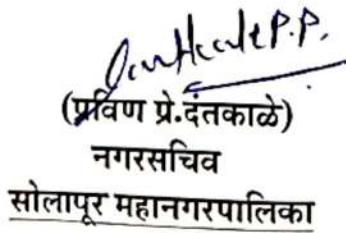 (प्रविण प्रे.दंतकाळे)
नगरसचिव
सोलापूर महानगरपालिका